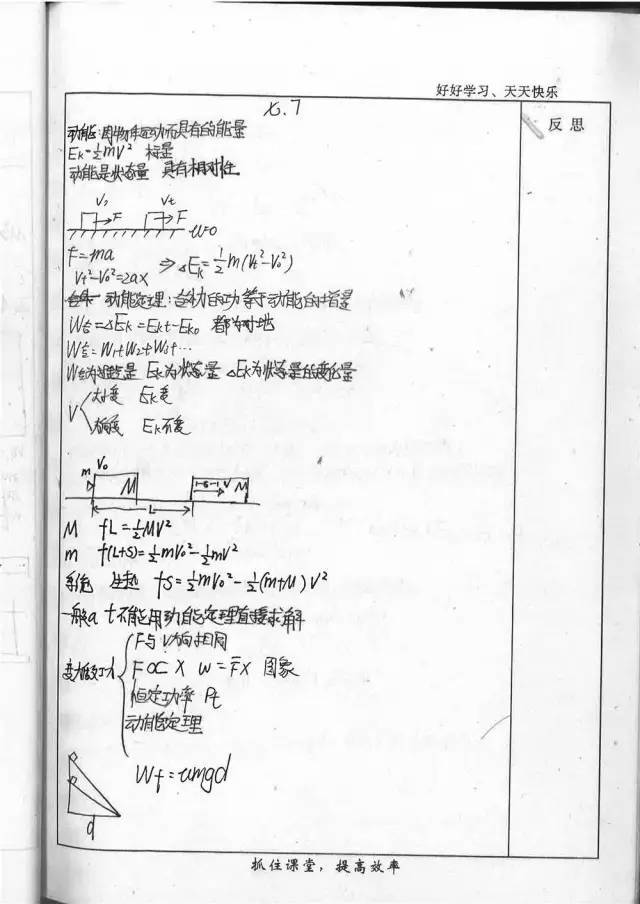 好好学习、天天快乐
7.7
反思
动能:因物体运动而具有的能量
Ek=½mv² 标量
动能是状态量 具有相对性
V₁ Vt
F F
u=0
F=ma
Vt²-V₀²=2ax ⇒ΔEk=½m(Vt²-V₀²)
动能定理:合力的功等于动能的增量
W合=ΔEk=Ekt-Ek₀ 都为对地
W合=W₁+W₂+W₃+…
W合为过程量 Ek为状态量 ΔEk为状态量的变化量
V 大小变 Ek变
方向变 Ek不变
m V₀ M S V M
L
M fL=½MV²
m f(L+S)=½mV₀²-½mV²
系统 生热 fS=½mV₀²-½(m+M)V²
一般a t不能用动能定理直接求解
变力做功
F与V方向相同
F∝X W=F̄X 图象
恒定功率 Pt
动能定理
Wf=umgd
d
抓住课堂,提高效率